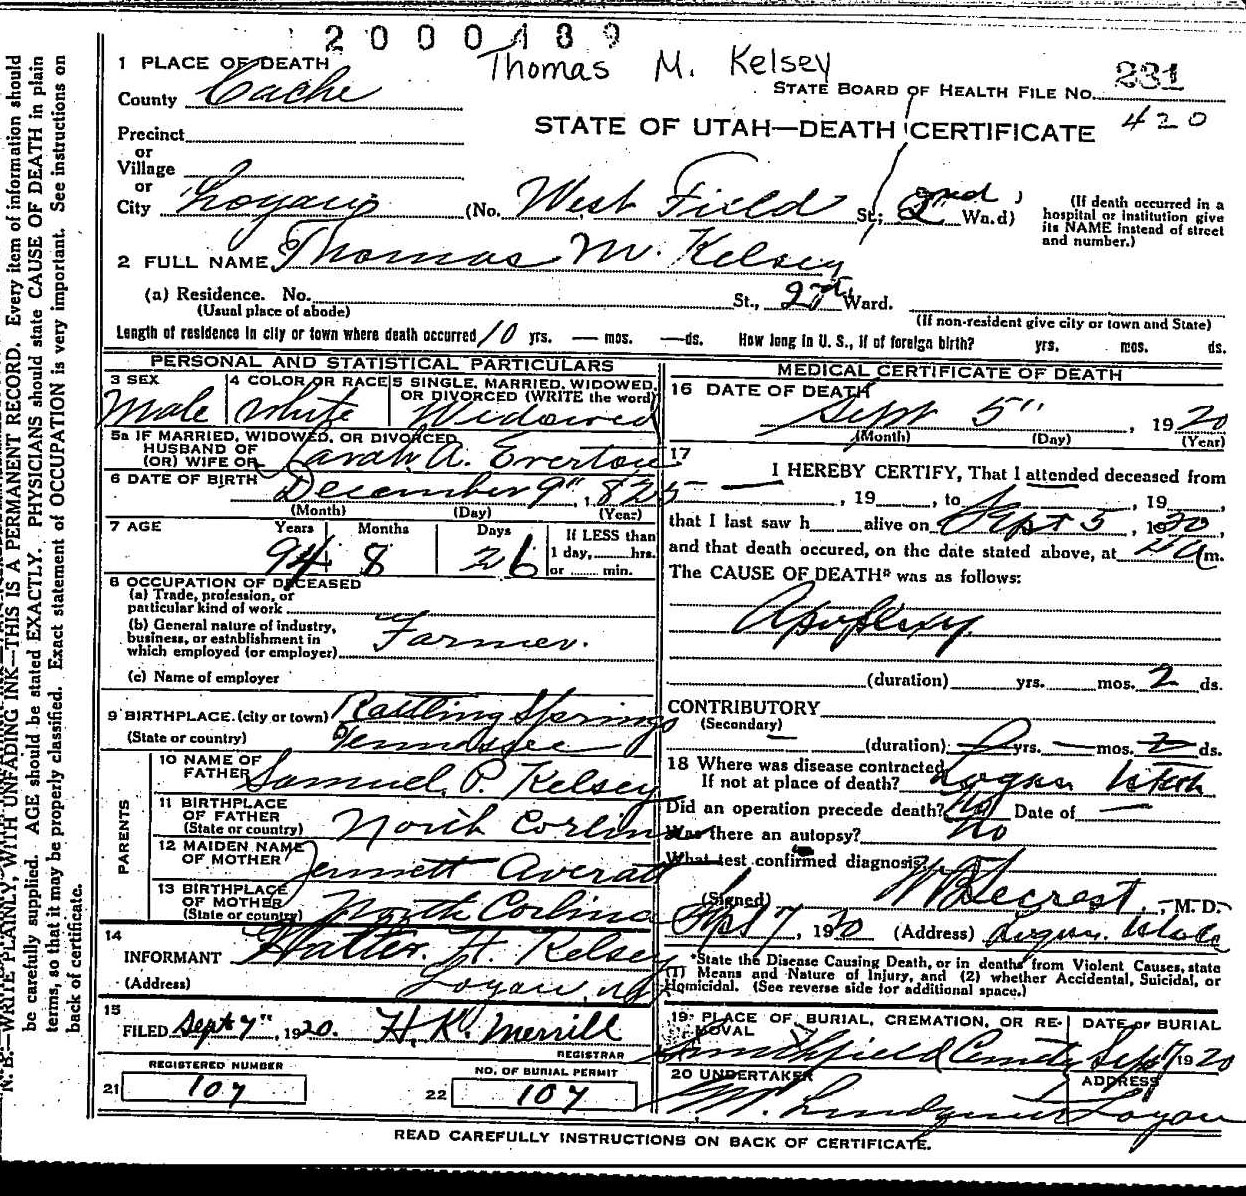 2000489
Thomas M. Kelsey
1 PLACE OF DEATH
County Cache
STATE BOARD OF HEALTH FILE No. 231
420
STATE OF UTAH—DEATH CERTIFICATE
Precinct
or
Village
or
City Logan (No. West Field St; 2nd Wa.d)
(If death occurred in a hospital or institution give its NAME instead of street and number.)
2 FULL NAME Thomas M. Kelsey
(a) Residence. No. St., 2nd Ward.
(Usual place of abode) (If non-resident give city or town and State)
Length of residence in city or town where death occurred 10 yrs. — mos. — ds. How long in U. S., if of foreign birth? yrs. mos. ds.
PERSONAL AND STATISTICAL PARTICULARS
3 SEX Male
4 COLOR OR RACE White
5 SINGLE, MARRIED, WIDOWED, OR DIVORCED (WRITE the word) Widowed
5a IF MARRIED, WIDOWED, OR DIVORCED
HUSBAND OF
(OR) WIFE OF Sarah A. Everton
6 DATE OF BIRTH December 9", 1825
(Month) (Day) (Year)
7 AGE Years 94 Months 8 Days 26 If LESS than
1 day, hrs.
or min.
8 OCCUPATION OF DECEASED
(a) Trade, profession, or
particular kind of work
(b) General nature of industry,
business, or establishment in
which employed (or employer) Farmer.
(c) Name of employer
9 BIRTHPLACE (city or town) Rattling Springs
(State or country) Tennessee
PARENTS
10 NAME OF FATHER Samuel P. Kelsey
11 BIRTHPLACE OF FATHER
(State or country) North Corlina
12 MAIDEN NAME OF MOTHER Jennett Averatt
13 BIRTHPLACE OF MOTHER
(State or country) North Corlina
14
INFORMANT Walter. H. Kelsey
(Address) Logan,
15
FILED Sept 7", 1920. H. K. Merrill
REGISTRAR
REGISTERED NUMBER
21 107
NO. OF BURIAL PERMIT
22 107
MEDICAL CERTIFICATE OF DEATH
16 DATE OF DEATH
Sept 5", 1920
(Month) (Day) (Year)
17
I HEREBY CERTIFY, That I attended deceased from
—, 19, to, 19,
that I last saw h alive on Sept 5, 1920,
and that death occured, on the date stated above, at m.
The CAUSE OF DEATH* was as follows:
Apoplexy.
(duration) yrs. mos. 2 ds.
CONTRIBUTORY
(Secondary)
(duration) yrs. — mos. 2 ds.
18 Where was disease contracted
If not at place of death? Logan Utah
Did an operation precede death? No Date of —
Was there an autopsy? No
What test confirmed diagnosis?
(Signed) , M. D.
Sept 7, 1920 (Address) Logan. Utah
*State the Disease Causing Death, or in deaths from Violent Causes, state
(1) Means and Nature of Injury, and (2) whether Accidental, Suicidal, or
Homicidal. (See reverse side for additional space.)
19 PLACE OF BURIAL, CREMATION, OR REMOVAL
Smithfield Cemetery
DATE OF BURIAL
Sept 7 1920
20 UNDERTAKER
M. Lundquist
ADDRESS
Logan
READ CAREFULLY INSTRUCTIONS ON BACK OF CERTIFICATE.
N. B.—WRITE PLAINLY, WITH UNFADING INK—THIS IS A PERMANENT RECORD. Every item of information should
be carefully supplied. AGE should be stated EXACTLY. PHYSICIANS should state CAUSE OF DEATH in plain
terms, so that it may be properly classified. Exact statement of OCCUPATION is very important. See instructions on
back of certificate.